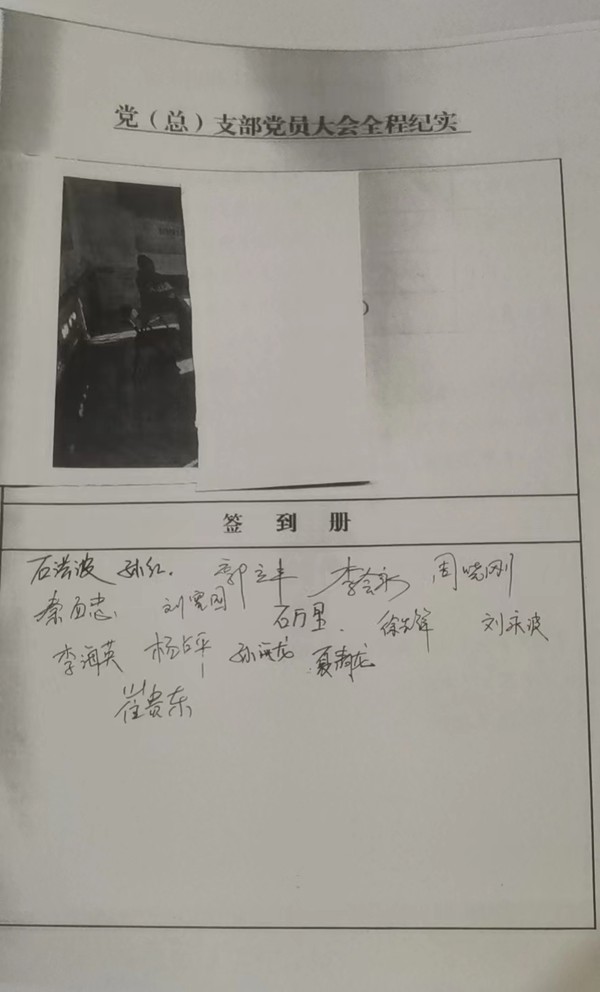 党（总）支部党员大会全程纪实
签 到 册
石洪波 孙红. 郭立丰 李会永 周晓刚
秦 忠. 刘宽国 石万里. 徐 锋 刘永波
李海英 杨占平 孙 龙 夏寿龙
崔贵东